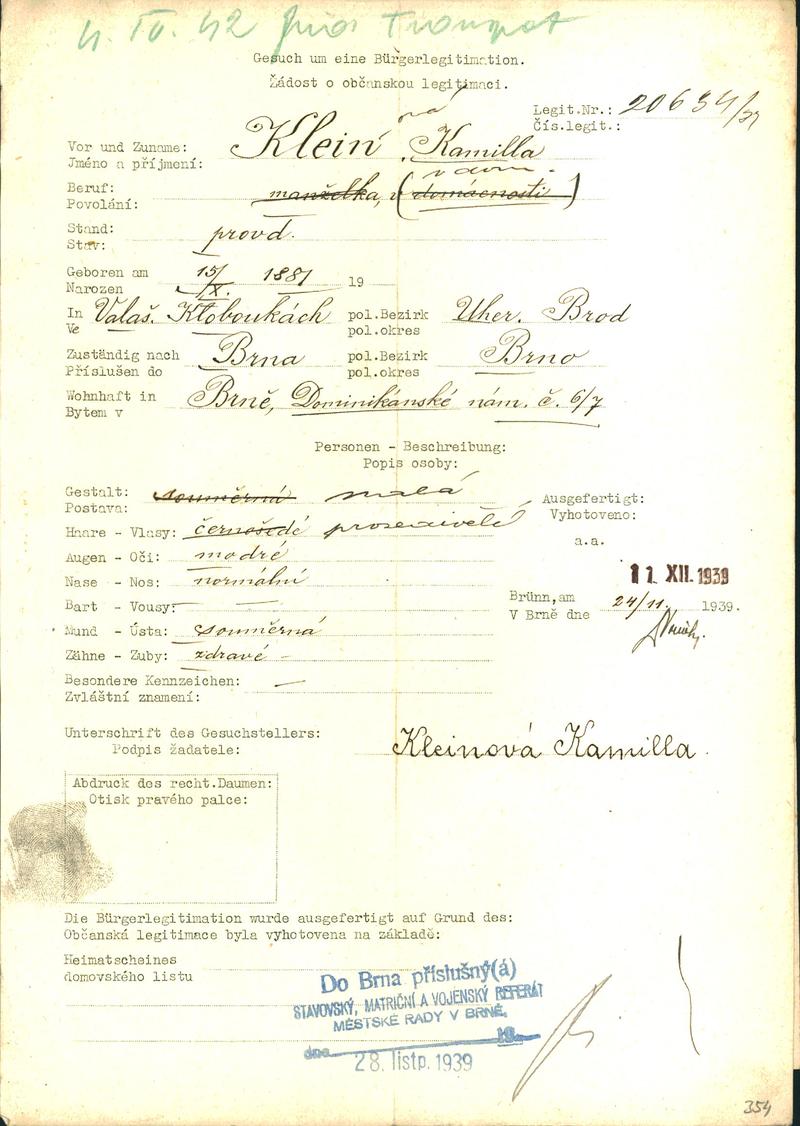 4. IV. 42 Transport
Gesuch um eine Bürgerlegitimation.
Žádost o občanskou legitimaci.
Legit.Nr.: 20634/39
Čís.legit.:
Vor und Zuname: Klein ová Kamilla
Jméno a příjmení:
v dom.
Beruf: manželka, v (domácnosti)
Povolání:
Stand: provd.
Stav:
Geboren am 15/X. 1881 19
Narozen
In Valaš. Kloboukách pol.Bezirk Uher. Brod
Ve pol.okres
Zuständig nach Brna pol.Bezirk Brno
Příslušen do pol.okres
Wohnhaft in Brně, Dominikánské nám. č. 6/7
Bytem v
Personen - Beschreibung:
Popis osoby:
Gestalt: souměrná malá
Postava:
Ausgefertigt:
Vyhotoveno:
Haare - Vlasy: černošedé prosedivělé
a.a.
Augen - Oči: modré
11. XII. 1939
Nase - Nos: normální
Brünn,am 24/11. 1939.
V Brně dne
Bart - Vousy: —
Mund - Ústa: souměrná
Zähne - Zuby: zdravé -
Besondere Kennzeichen: —
Zvláštní znamení:
Unterschrift des Gesuchstellers: Kleinová Kamilla.
Podpis žadatele:
Abdruck des recht.Daumen:
Otisk pravého palce:
Die Bürgerlegitimation wurde ausgefertigt auf Grund des:
Občanská legitimace byla vyhotovena na základě:
Heimatscheines
domovského listu
Do Brna příslušný(á)
STAVOVSKÝ, MATRIČNÍ A VOJENSKÝ REFERÁT
MĚSTSKÉ RADY V BRNĚ,
dne 19
28. listp. 1939
354